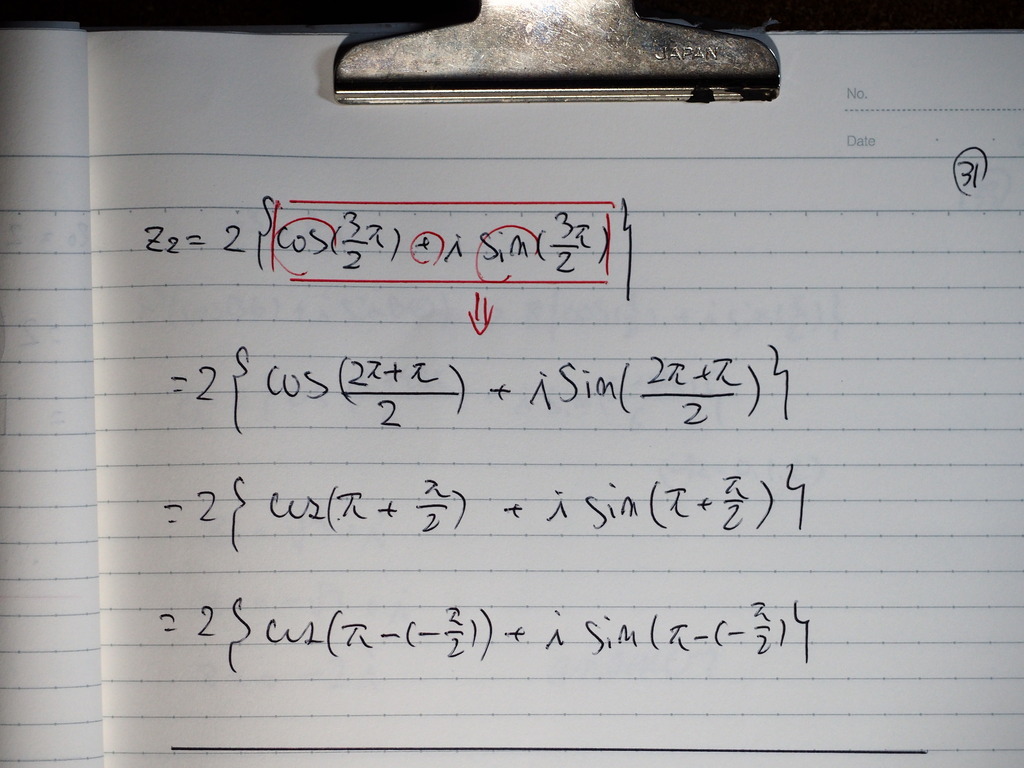 JAPAN
No.
Date
31
z₂ = 2 { cos(3/2 π) + i sin(3π/2) }
⇓
= 2 { cos((2π+π)/2) + i Sin((2π+π)/2) }
= 2 { cos(π + π/2) + i sin(π + π/2) }
= 2 { cos(π-(-π/2)) + i sin(π-(-π/2) }